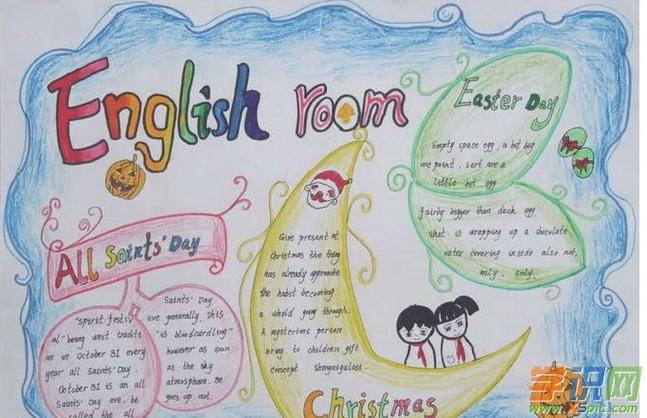 English room
Easter Day
Empty space egg, a bit big
one point, sort are a
little bit egg
fairly bigger than duck egg.
What is wrapping up a chocolate
outer covering inside also not,
only only.
All Saints' Day
"spirit festiv
al" being west traditi
on in October 31 every
year all Saints' Day
October 31 is an all
Saints' Day eve. be
called the all
Saints' Day
are generally. this
"is bloodcurdling"
however as soon
as the sky
atmosphere. Be
goes up not.
Give present at
Christmas the thing
has already approximate
the habit becoming
a whold going through.
A mysterious person
bring to children gift
concept Shengeigulasi.
Christmas
学识网
www.XSpic.com